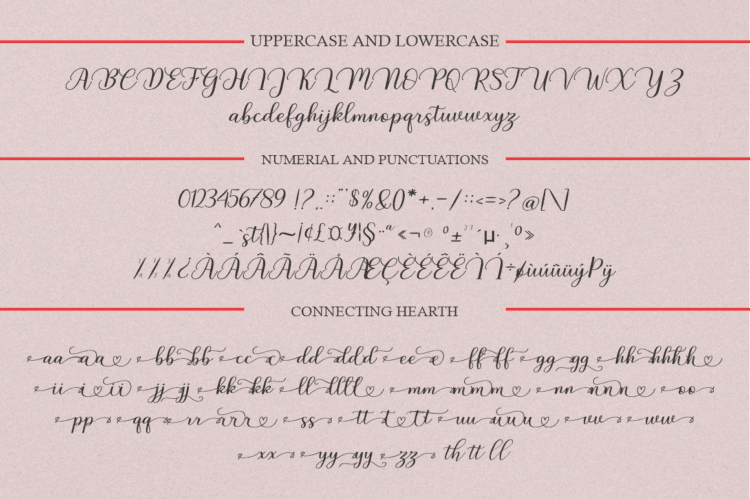 UPPERCASE AND LOWERCASE
ABCDEFGHIJKLMNOPQRSTUVWXYZ
abcdefghijklmnopqrstuvwxyz
NUMERIAL AND PUNCTUATIONS
0123456789 !?..::¨"$%&()*+.-/::<=>?@[\]
^_`{|}~¡¢£¤¥¦§¨ª«¬®º±²³´µ·¸¹º»
¿ÀÁÂÃÄÅÆÇÈÉÊËÌÍ÷øùúûüýÞÿ
CONNECTING HEARTH
aa aa bb bb cc dd ddd ee ff ff gg gg hh hhhh
ii jj jj kk kk ll llll mm mmm nn nnn oo
pp qq rr ss tt tt uu uuu vv ww
xx yy yy zz th tt ll